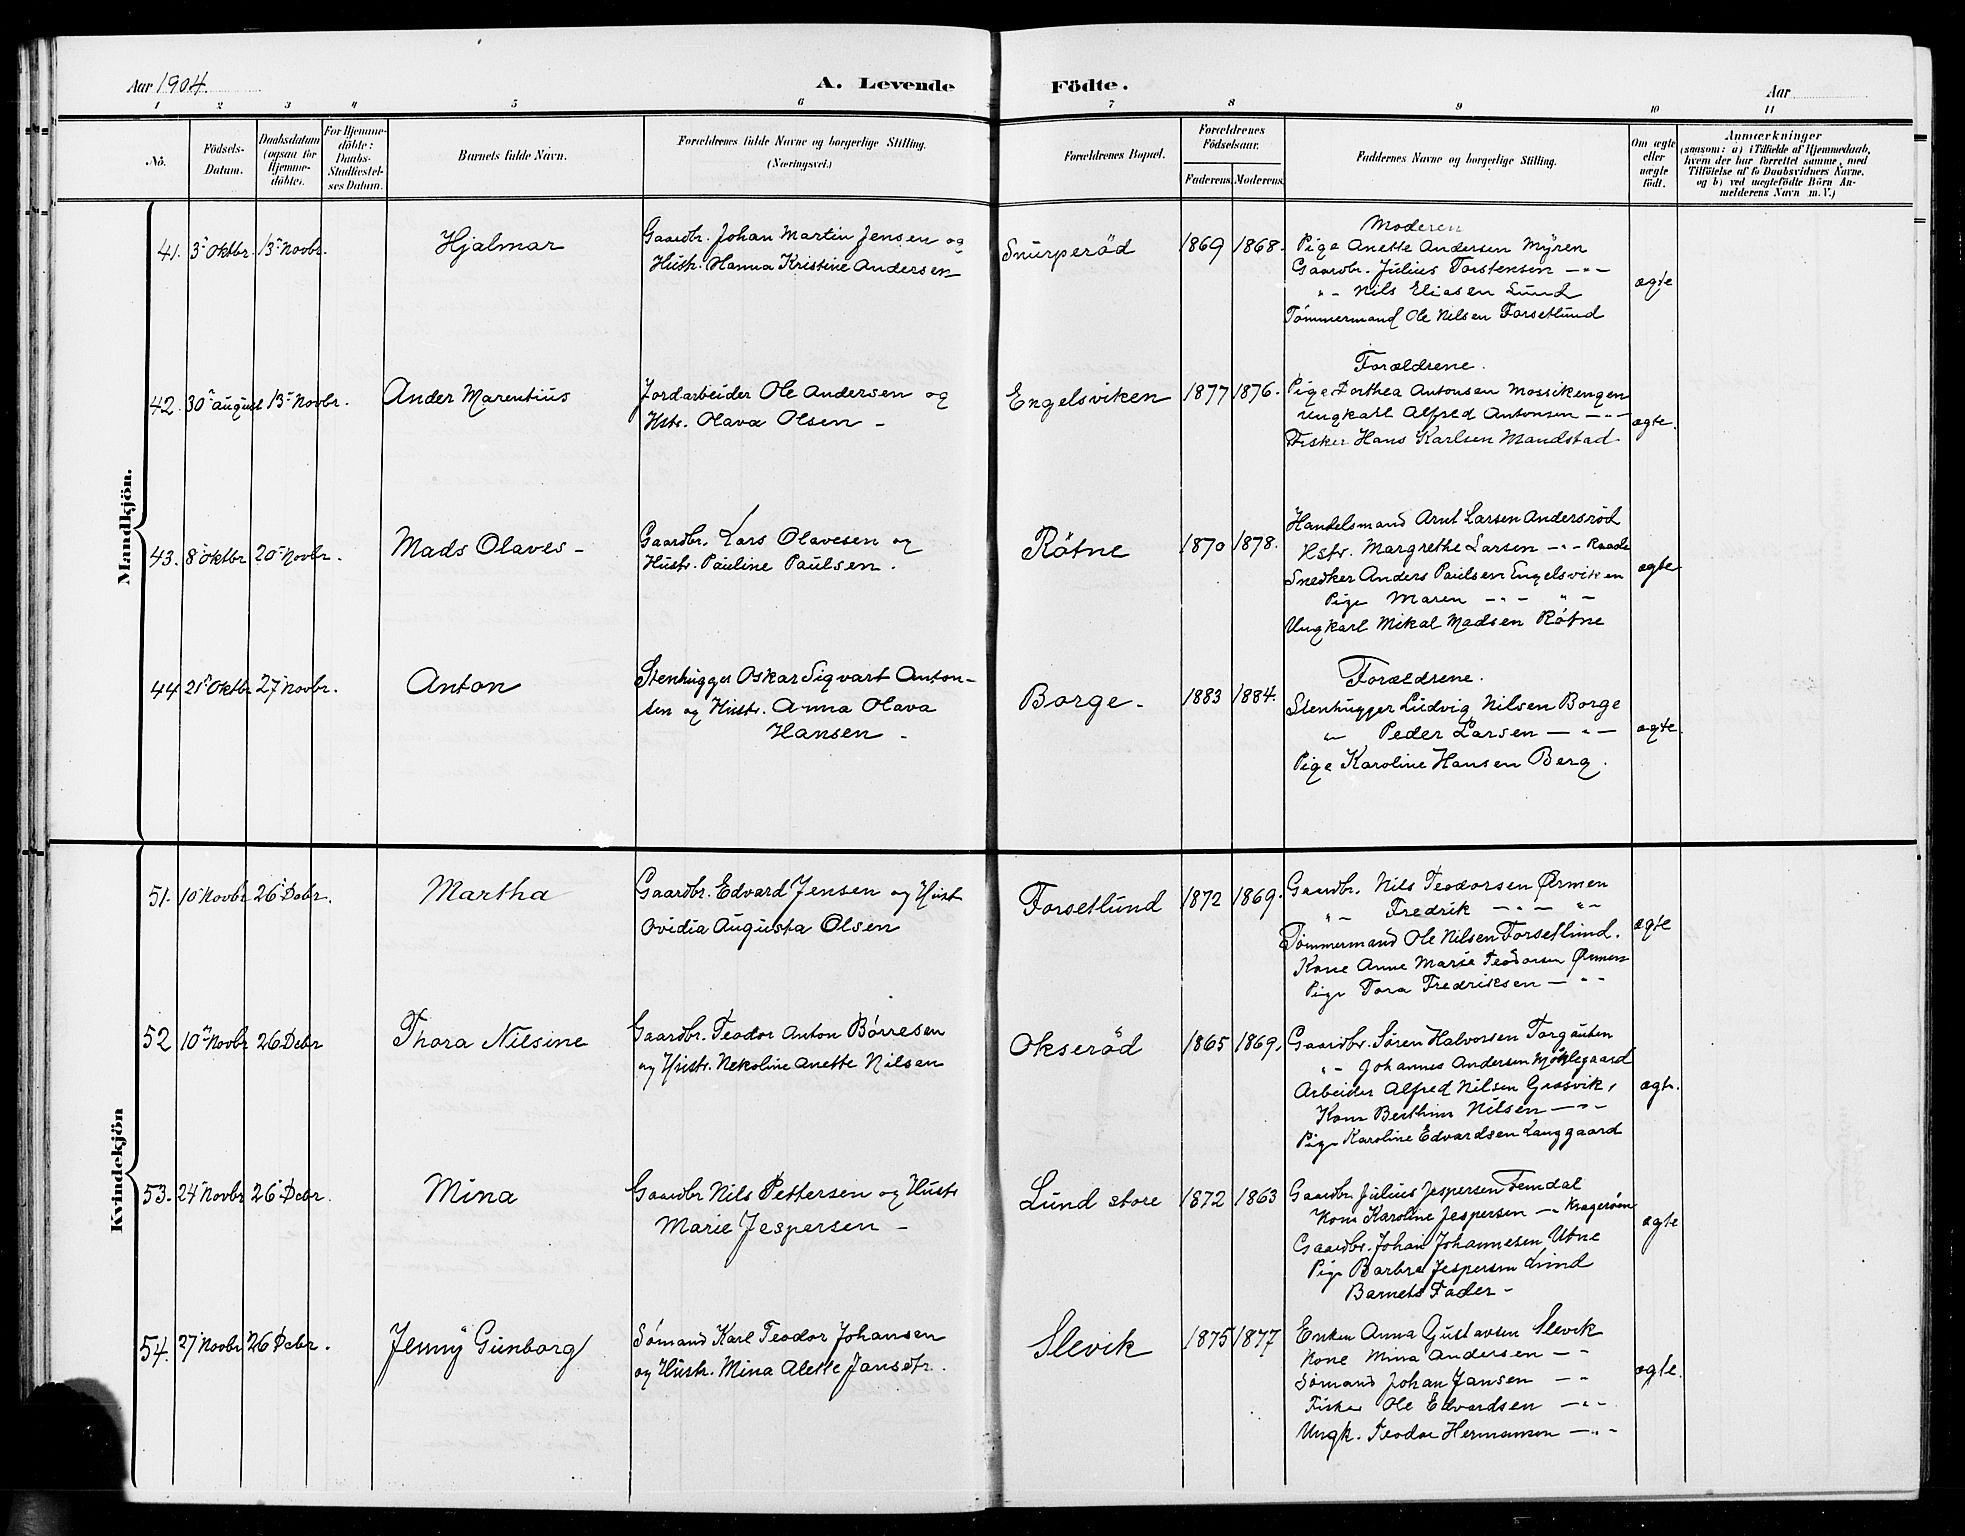 Aar 1904.
A. Levende Födte.
Aar
1 2 3 4 5 6 7 8 9 10 11
No.
Födsels-Datum.
Daabsdatum (ogsaa for Hjemme-döbte).
For Hjemme-döbte: Daabs-Stadfæstel-ses Datum.
Barnets fulde Navn.
Forældrenes fulde Navne og borgerlige Stilling. (Næringsvei.)
Forældrenes Bopæl.
Forældrenes Födselsaar.
Faderens. Moderens.
Faddernes Navne og borgerlige Stilling.
Om ægte eller uægte födt.
Anmærkninger
(saasom: a) i Tilfælde af Hjemmedaab,
hvem der har forrettet samme, med
Tilföielse af to Daabsvidners Navne.
og b) ved uægtefödte Börn An-
melderens Navn m. V.)
Mandkjön.
41. 3 Oktbr. 13 Novbr. Hjalmar
Gaardbr. Johan Martin Jensen og
Hustr. Hanna Kristine Andersen
Snurperöd 1869 1868.
Moderen
Pige Anette Andersen Myren
Gaardbr. Julius Torstensen — " —
" — Nils Eliasen Lund
Tømmermand Ole Nilsen Forsetlund
ægte
42. 30 august 13 Novbr. Ander Marentius
Jordarbeider Ole Andersen og
Hstr. Olava Olsen -
Engelsviken 1877 1876.
Forældrene.
Pige Dorthea Antonsen Mossikengen
Ungkarl Alfred Antonsen — " —
Fisker Hans Karlsen Mandstad
ægte.
43. 8 Oktbr 20 Novbr. Mads Olaves -
Gaardbr. Lars Olavesen og
Hustr. Pauline Paulsen.
Røtne 1870 1878.
Handelsmand Arnt Larsen Andersröd
Hstr. Margrethe Larsen — " — Raade
Snedker Anders Paulsen Engelsviken
Pige Maren — " — " —
Ungkarl Mikal Madsen Røtne
ægte
44 21 Oktbr 27 Novbr. Anton
Stenhugger Oskar Sigvart Anton-
sen og Hustr. Anna Olava
Hansen -
Borge - 1883 1884.
Forældrene.
Stenhugger Ludvig Nilsen Borge
" Peder Larsen — " —
Pige Karoline Hansen Berg.
ægte.
Kvindekjön
51. 10 Novbr 26 Debr. Martha
Gaardbr. Edvard Jensen og Hust
Ovidia Augusta Olsen
Forsetlund 1872 1869.
Gaardbr. Nils Teodorsen Ørmen
" — Fredrik — " — " —
Tømmermand Ole Nilsen Forsetlund.
Kone Anne Marie Teodorsen Ørmen
Pige Tora Fredriksen — " —
ægte
52 10 Novbr 26 Debr Thora Nilsine
Gaardbr. Teodor Anton Børresen
og Hustr. Nekoline Anette Nilsen
Okseröd 1865 1869,
Gaardbr. Søren Halvorsen Torgauten
" — Johannes Andersen Møklegaard
Arbeider Alfred Nilsen Gressvik,
Kone Berthine Nilsen — " —
Pige Karoline Edvardsen Langgaard
ægte.
53. 24 Novbr 26 Debr. Mina
Gaardbr Nils Pettersen og Hustr
Marie Jespersen -
Lund store 1872 1863
Gaardbr. Julius Jespersen Femdal
Kone Karoline Jespersen — " Kragerøen
Gaardbr. Johan Johannesen Utne
Pige Barbra Jespersen Lund
Barnets Fader -
ægte
54. 27 Novbr 26 Debr. Jenny Gunborg
Sømand Karl Teodor Johansen
og Hustr. Mina Alette Jansdtr.
Slevik 1875 1877
Enken Anna Gustavsen Slevik
Kone Mina Andersen — "
Sømand Johan Jansen — "
Fisker Ole Edvardsen — " —
Ungk. Teodor Hermansen — " —
ægte.